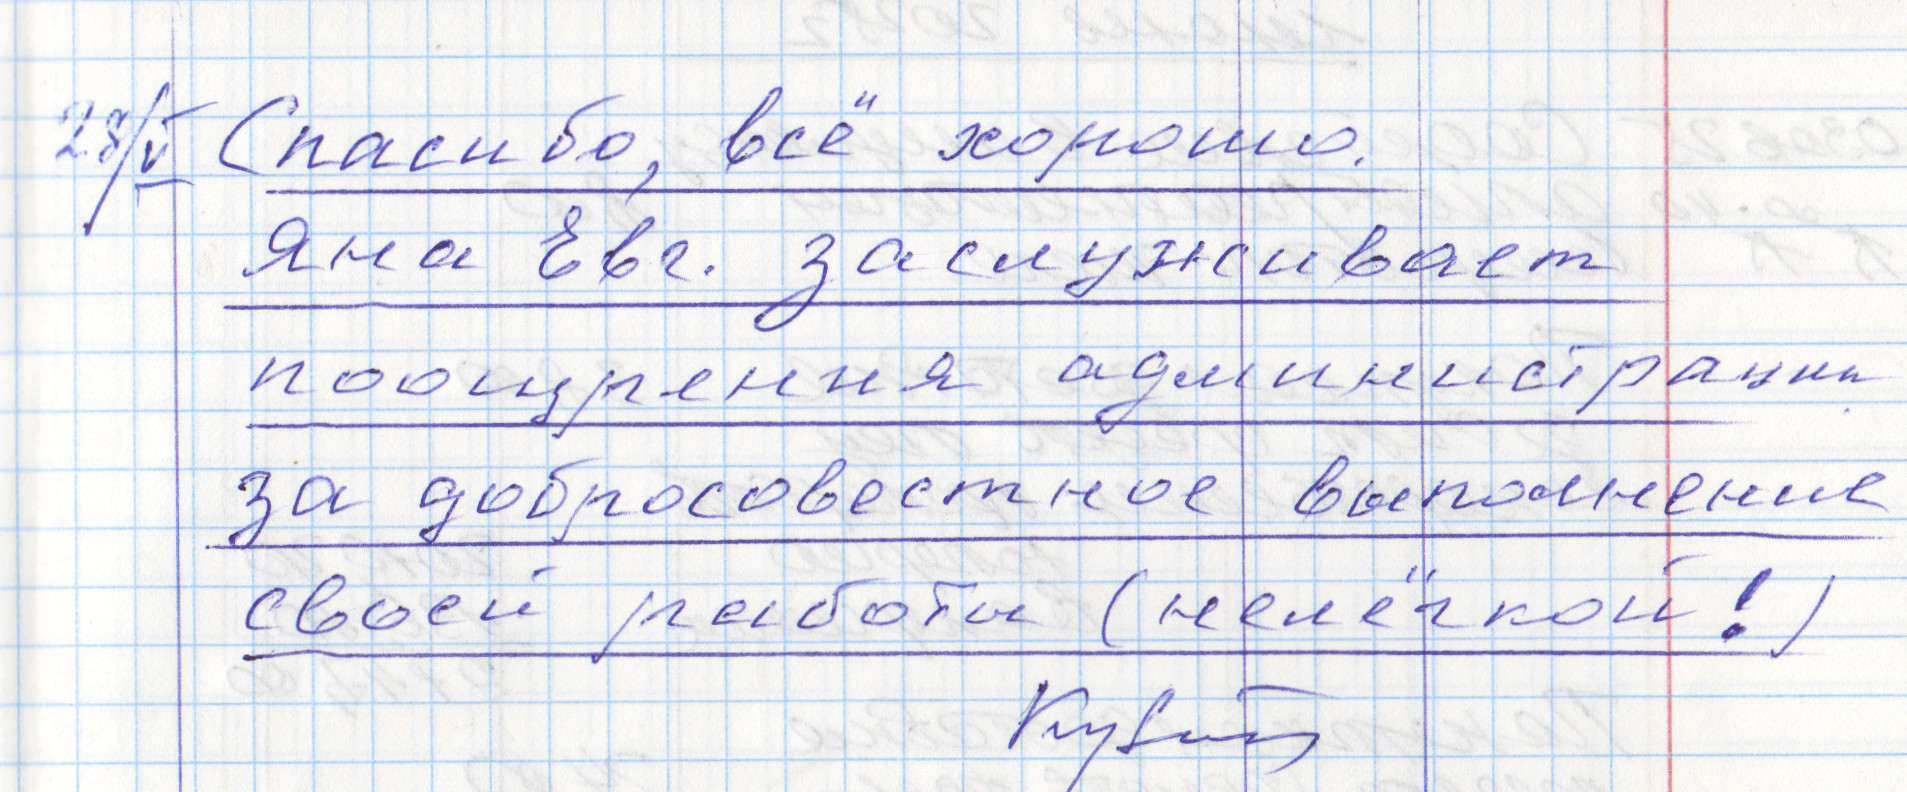 28/V Спасибо, всё хорошо.
Яна Евг. заслуживает
поощрения администрации
за добросовестное выполнение
своей работы (нелёгкой!)